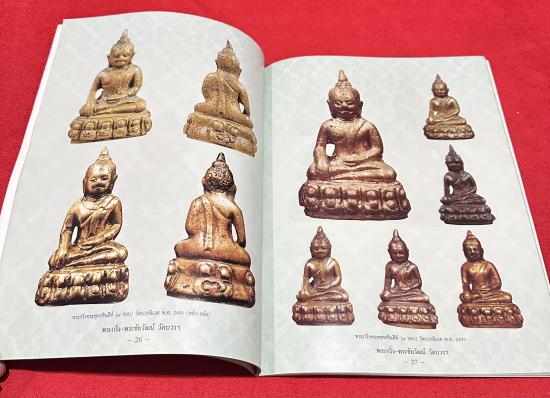 พระกริ่งพระพุทธชินสีห์ (๗ รอบ) วัดบวรนิเวศ พ.ศ. 2499 (หน้า-หลัง)
พระกริ่ง-พระชัยวัฒน์ วัดบวรฯ
- 26 -
พระกริ่งพระพุทธชินสีห์ (๗ รอบ) วัดบวรนิเวศ พ.ศ. 2499
พระกริ่ง-พระชัยวัฒน์ วัดบวรฯ
- 27 -